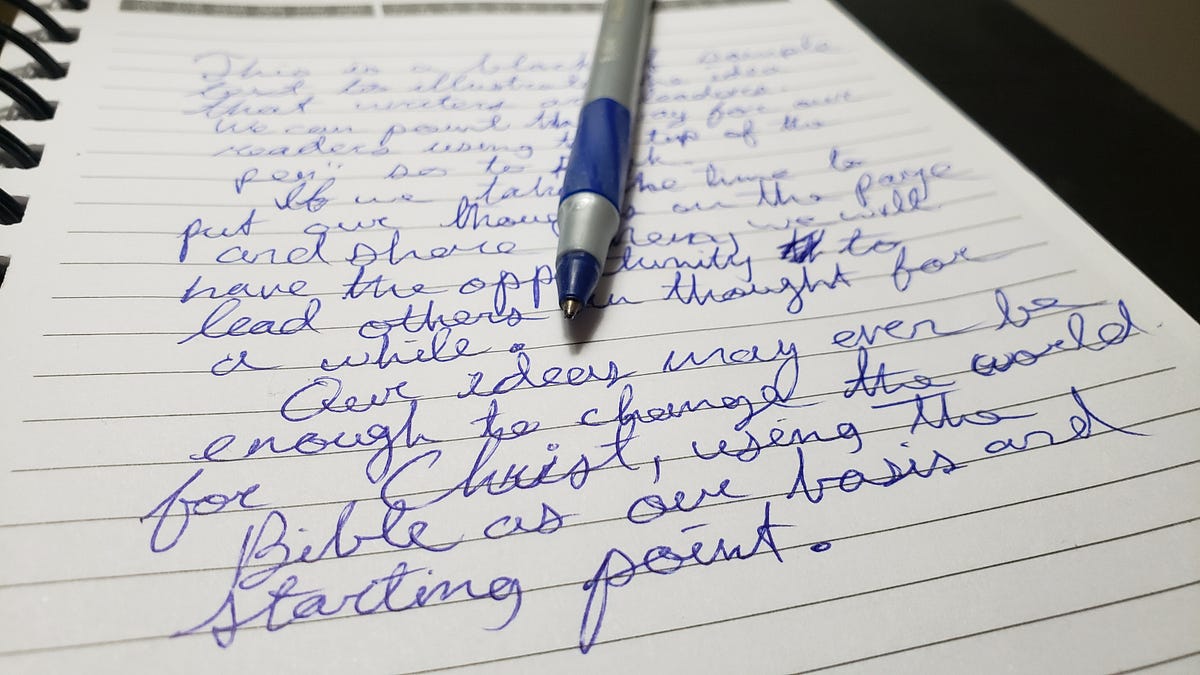 This is a sample
text to illustrate idea
that writers are leaders.
We can point the way for our
readers using tip of the
pen" so to
If we take the time to
put our thoug on the page
and share them, we will
have the opp tunity to
lead others in thought for
a while.
Our ideas may even be
enough to changed the world
for Christ, using the
Bible as our basis and
starting point.